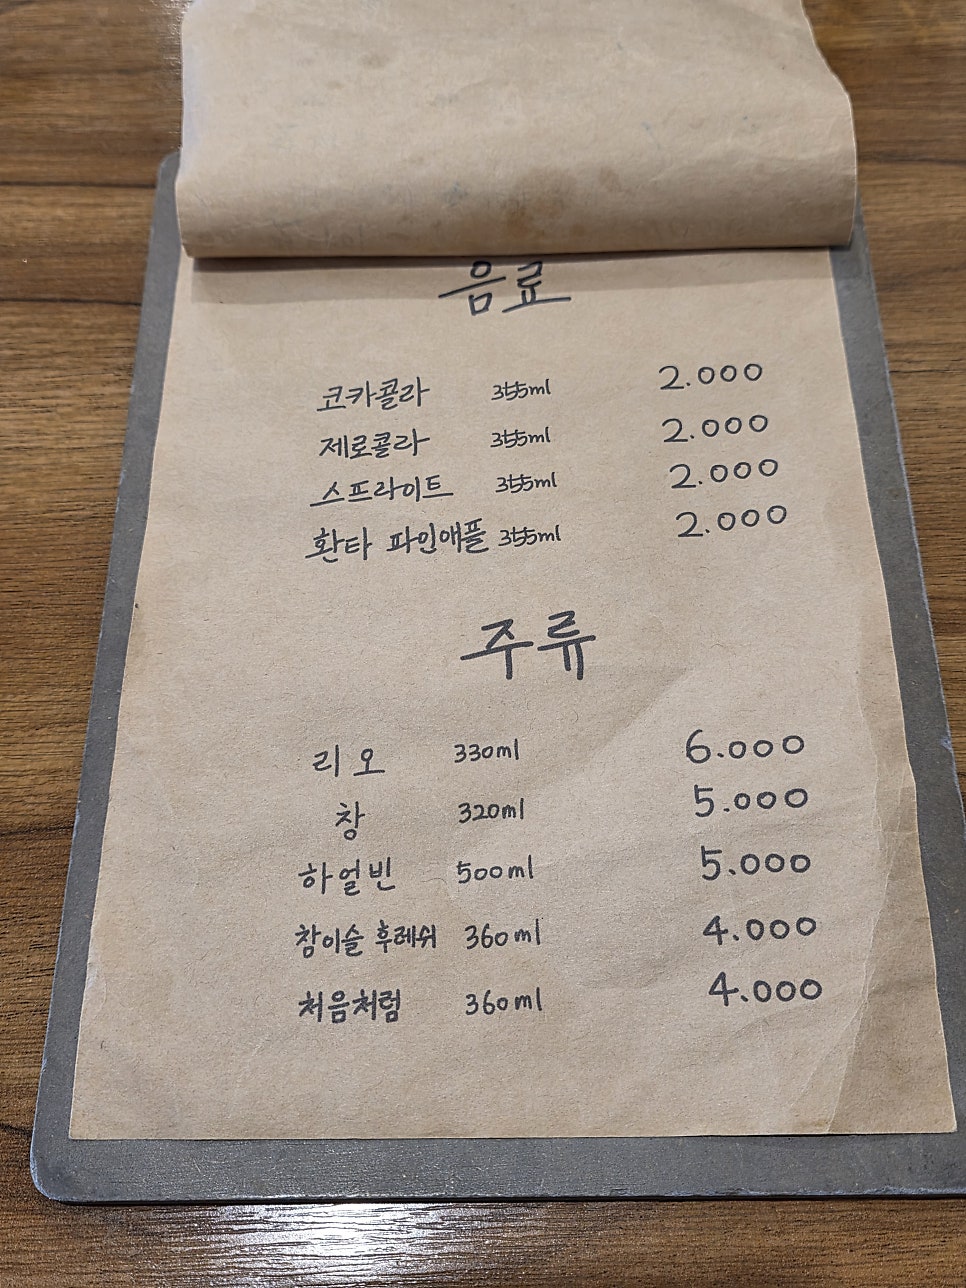 음료
코카콜라 355ml 2.000
제로콜라 355ml 2.000
스프라이트 355ml 2.000
환타 파인애플 355ml 2.000
주류
리오 330ml 6.000
창 320ml 5.000
하얼빈 500ml 5.000
참이슬 후레쉬 360ml 4.000
처음처럼 360ml 4.000